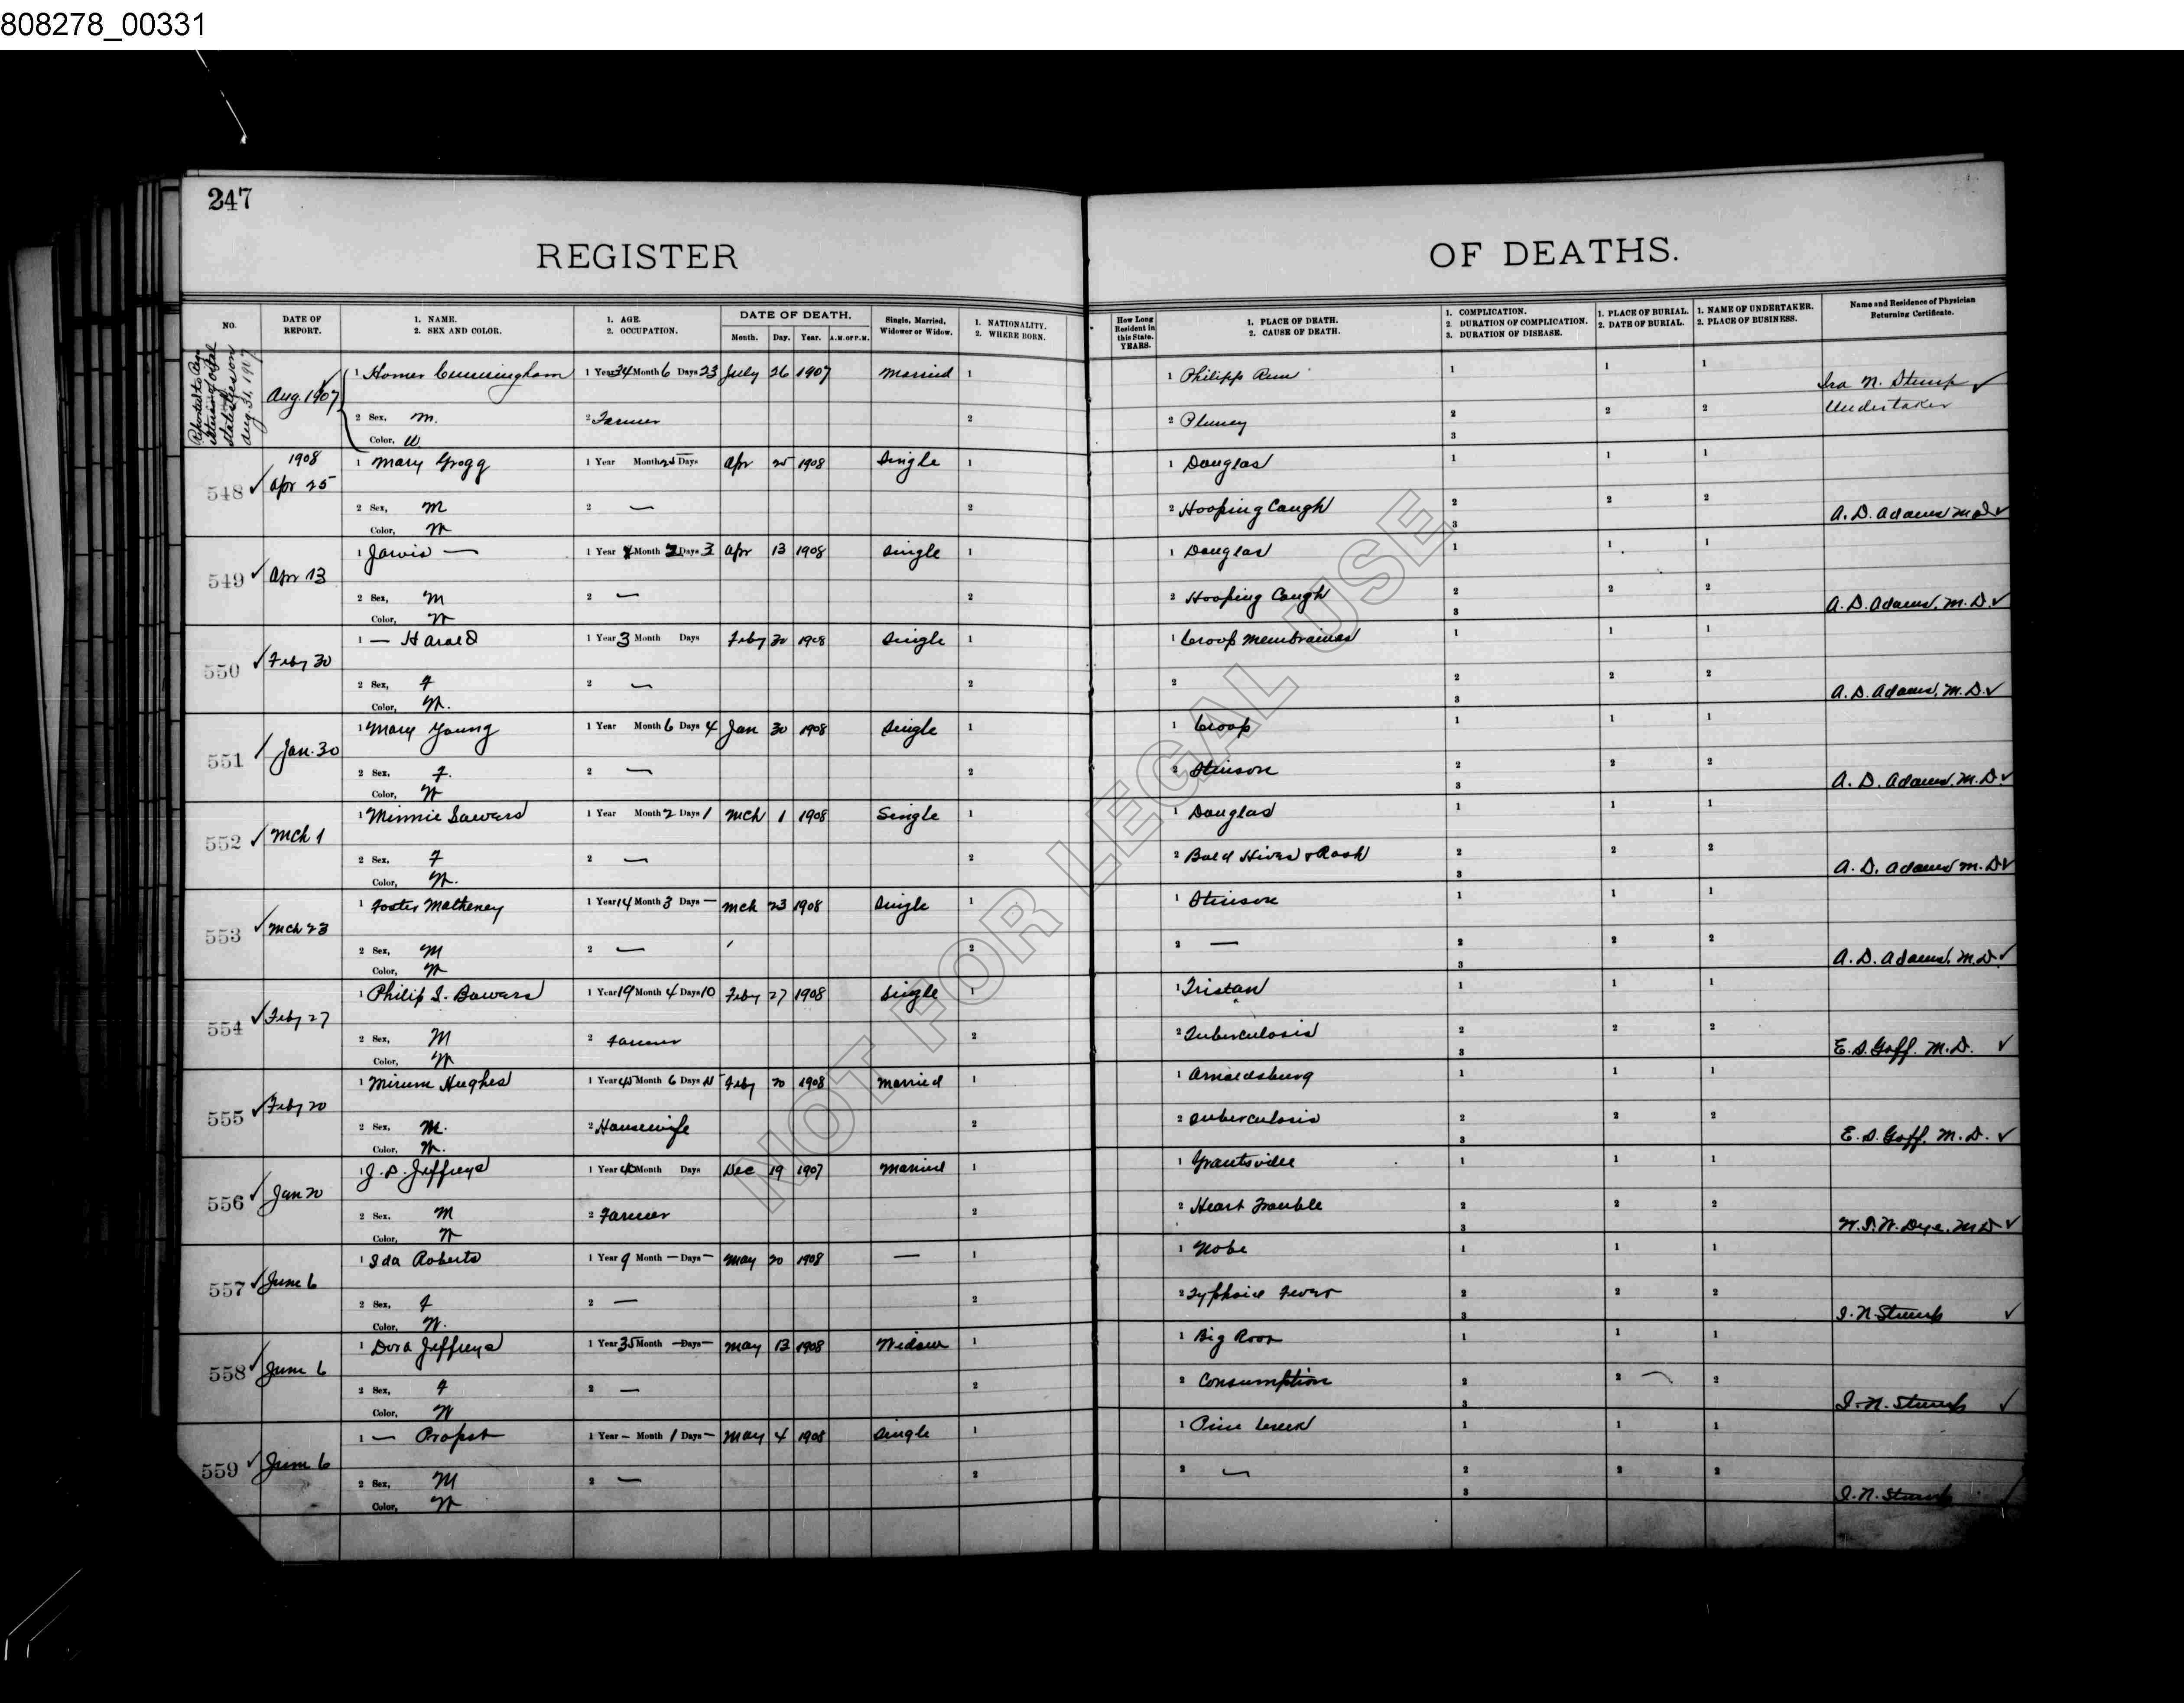 808278_00331
247
REGISTER OF DEATHS.
NO. DATE OF REPORT. 1. NAME. 2. SEX AND COLOR. 1. AGE. 2. OCCUPATION. DATE OF DEATH. Month. Day. Year. A.M. or P.M. Single, Married, Widower or Widow. 1. NATIONALITY. 2. WHERE BORN. How Long Resident in this State. YEARS. 1. PLACE OF DEATH. 2. CAUSE OF DEATH. 1. COMPLICATION. 2. DURATION OF COMPLICATION. 3. DURATION OF DISEASE. 1. PLACE OF BURIAL. 2. DATE OF BURIAL. 1. NAME OF UNDERTAKER. 2. PLACE OF BUSINESS. Name and Residence of Physician Returning Certificate.
Aug. 31, 1907
Aug. 1907 1 Homer Cunningham 1 Year 34 Month 6 Days 23 July 26 1907 Married 1 1 Philipp Run 1 1 1 Ira N. Stump ✓
2 Sex, M. 2 Farmer 2 2 2 2 2 Undertaker
Color, W 3
548 ✓ 1908 Apr 25 1 Mary Grogg 1 Year Month Days Apr 25 1908 Single 1 1 Douglas 1 1 1
2 Sex, M 2 — 2 2 Hooping Caugh 2 2 2 A. D. Adams M.D. ✓
Color, W 3
549 ✓ Apr 13 1 Jarvis — 1 Year Month 2 Days 3 Apr 13 1908 Single 1 1 Douglas 1 1 1
2 Sex, M 2 — 2 2 Hooping Caugh 2 2 2 A. D. Adams, M.D. ✓
Color, W 3
550 ✓ Feby 30 1 — Harald 1 Year 3 Month Days Feby 30 1908 Single 1 1 Croop Membrainas 1 1 1
2 Sex, F 2 — 2 2 2 2 2 A. D. Adams, M.D. ✓
Color, W. 3
551 / Jan. 30 1 Mary Young 1 Year Month 6 Days 4 Jan 30 1908 Single 1 1 Croop 1 1 1
2 Sex, F. 2 — 2 2 Stinson 2 2 2 A. D. Adams, M.D. ✓
Color, W 3
552 ✓ Mch 1 1 Minnie 1 Year Month 2 Days 1 Mch 1 1908 Single 1 1 Douglas 1 1 1
2 Sex, F 2 — 2 2 Bold Hives & Rash 2 2 2 A. D. Adams M.D. ✓
Color, W. 3
553 ✓ Mch 23 1 Foster Matheney 1 Year 14 Month 3 Days — Mch 23 1908 Single 1 1 Stinson 1 1 1
2 Sex, M 2 — 2 2 — 2 2 2 A. D. Adams, M.D. ✓
Color, W 3
554 ✓ Feby 27 1 Philip S. Bowers 1 Year 19 Month 4 Days 10 Feby 27 1908 Single 1 1 Tristan 1 1 1
2 Sex, M 2 Farmer 2 2 Tuberculosis 2 2 2 E. S. Goff. M.D. ✓
Color, W 3
555 ✓ Feby 20 1 Hughes 1 Year Month 6 Days Feby 20 1908 Married 1 1 Arnoldsburg 1 1 1
2 Sex, M. 2 Housewife 2 2 Tuberculosis 2 2 2 E. S. Goff, M.D. ✓
Color, W. 3
556 ✓ Jan 20 1 J. S. Jeffreys 1 Year Month Days Dec 19 1907 Married 1 1 Grantsville 1 1 1
2 Sex, M 2 Farmer 2 2 Heart Trouble 2 2 2 W. T. W. Dye, M.D. ✓
Color, W 3
557 ✓ June 6 1 Ida Roberts 1 Year 9 Month — Days — May 20 1908 — 1 1 Nobe 1 1 1
2 Sex, F 2 — 2 2 Typhoid Fever 2 2 2 I. N. Stump ✓
Color, W. 3
558 ✓ June 6 1 Dora Jeffreys 1 Year 35 Month — Days — May 13 1908 Widow 1 1 Big Root 1 1 1
2 Sex, F 2 — 2 2 Consumption 2 2 2 I. N. Stump ✓
Color, W 3
559 ✓ June 6 1 — Propst 1 Year — Month 1 Days — May 4 1908 Single 1 1 Pine Creek 1 1 1
2 Sex, M 2 — 2 2 — 2 2 2 I. N. Stump
Color, W 3
NOT FOR LEGAL USE